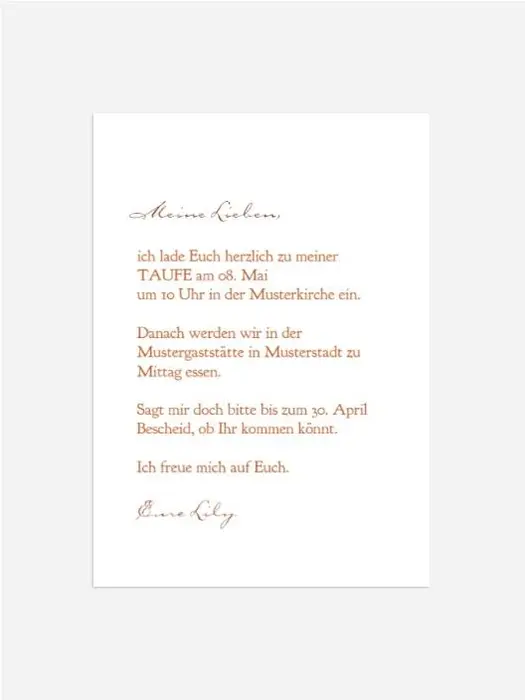 Meine Lieben,
ich lade Euch herzlich zu meiner
TAUFE am 08. Mai
um 10 Uhr in der Musterkirche ein.
Danach werden wir in der
Mustergaststätte in Musterstadt zu
Mittag essen.
Sagt mir doch bitte bis zum 30. April
Bescheid, ob Ihr kommen könnt.
Ich freue mich auf Euch.
Eure Lily